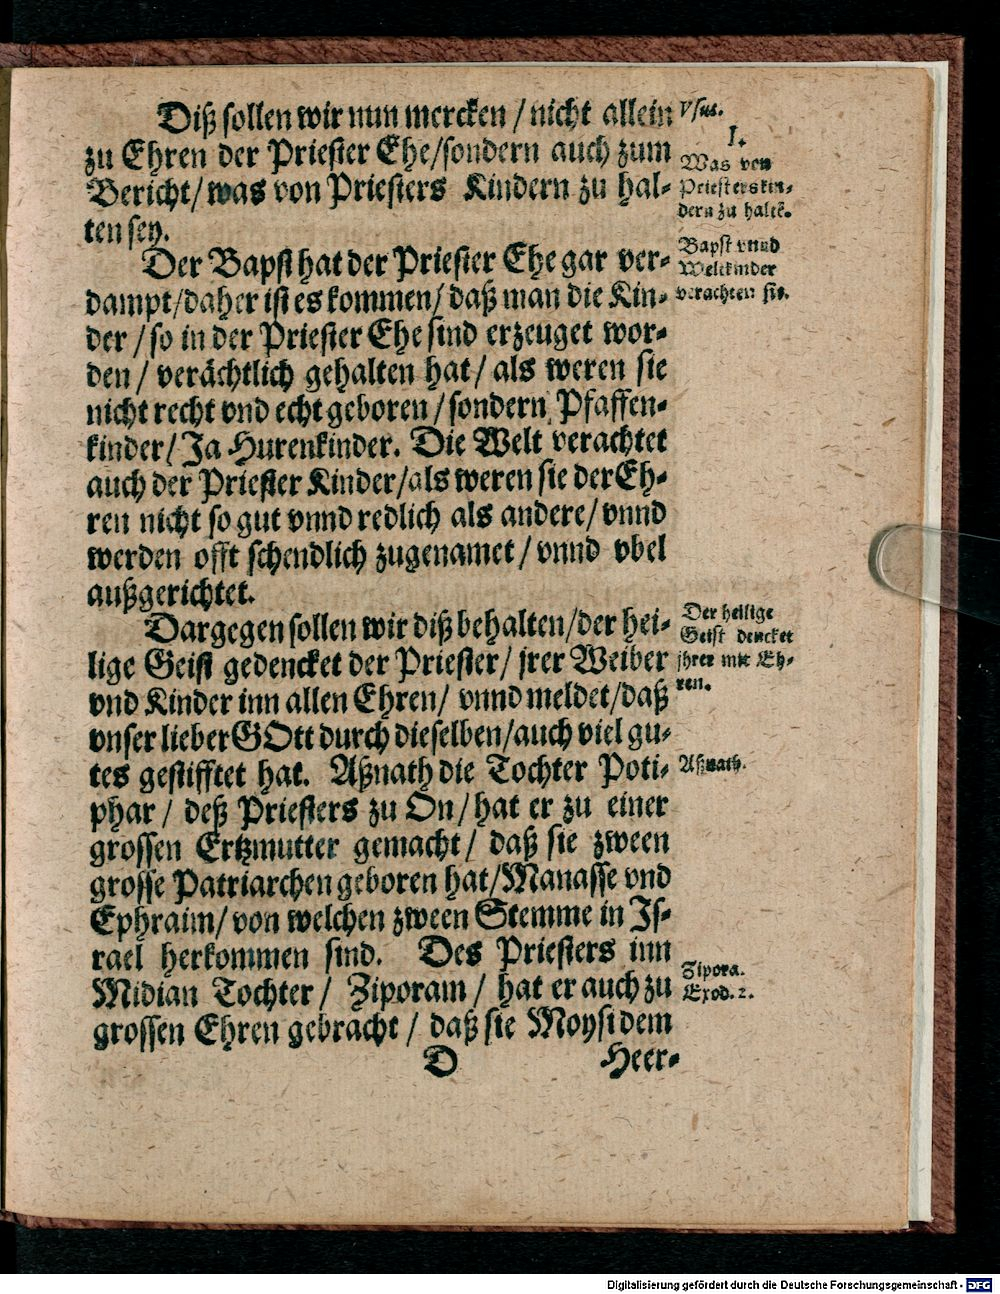 Diß sollen wir nun mercken / nicht allein
zu Ehren der Priester Ehe/sondern auch zum
Bericht/ was von Priesters Kindern zu hal-
ten sey.
Der Bapst hat der Priester Ehe gar ver-
dampt/daher ist es kommen/ daß man die Kin-
der / so in der Priester Ehe sind erzeuget wor-
den / verächtlich gehalten hat/ als weren sie
nicht recht vnd echt geboren /sondern Pfaffen-
kinder/ Ja Hurenkinder. Die Welt verachtet
auch der Priester Kinder/als weren sie der Eh-
ren nicht so gut vnnd redlich als andere/ vnnd
werden offt schendlich zugenamet / vnnd vbel
außgerichtet.
Dargegen sollen wir diß behalten/der hei-
lige Geist gedencket der Priester/ jrer Weiber
vnd Kinder inn allen Ehren/ vnnd meldet/daß
vnser lieber GOtt durch dieselben/auch viel gu-
tes gestifftet hat. Aßnath die Tochter Poti-
phar / deß Priesters zu On/ hat er zu einer
grossen Ertzmutter gemacht / daß sie zween
grosse Patriarchen geboren hat/Manasse vnd
Ephraim/ von welchen zween Stemme in Is-
rael herkommen sind. Des Priesters inn
Midian Tochter / Ziporam / hat er auch zu
grossen Ehren gebracht / daß sie Moysi dem
D Heer-
Vsus.
I.
Was von
Priesterskin-
dern zu haltē.
Bapst vnnd
Weltkinder
verachten sie.
Der heilige
Geist dencket
jhrer mit Eh-
ren.
Aßnath.
Zipora.
Exod. 2.
Digitalisierung gefördert durch die Deutsche Forschungsgemeinschaft - DFG